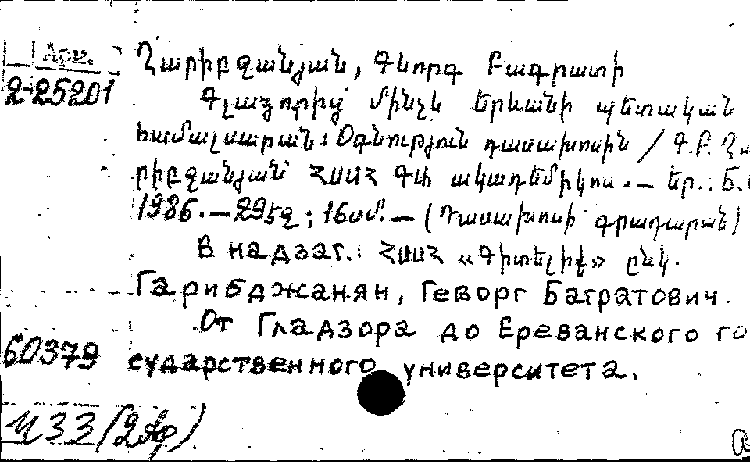 Арм.
2-25201
Ղարիբջանյան, Գևորգ Բագրատի
Գլաձորից մինչև Երևանի պետական
համալսարան: Օգնություն դասախոսին / Գ.Բ. Ղա
րիբջանյան՝ ՀՍՍՀ ԳԱ ակադեմիկոս. — Եր.:
1986. — 29 էջ; 16 սմ. — (Դասախոսի գրադարան)
В надзаг.: ՀՍՍՀ «Գիտելիք» ընկ.
Гарибджанян, Геворг Багратович.
От Гладзора до Ереванского го
60379 сударственного университета.
Ч33 (2Ар)